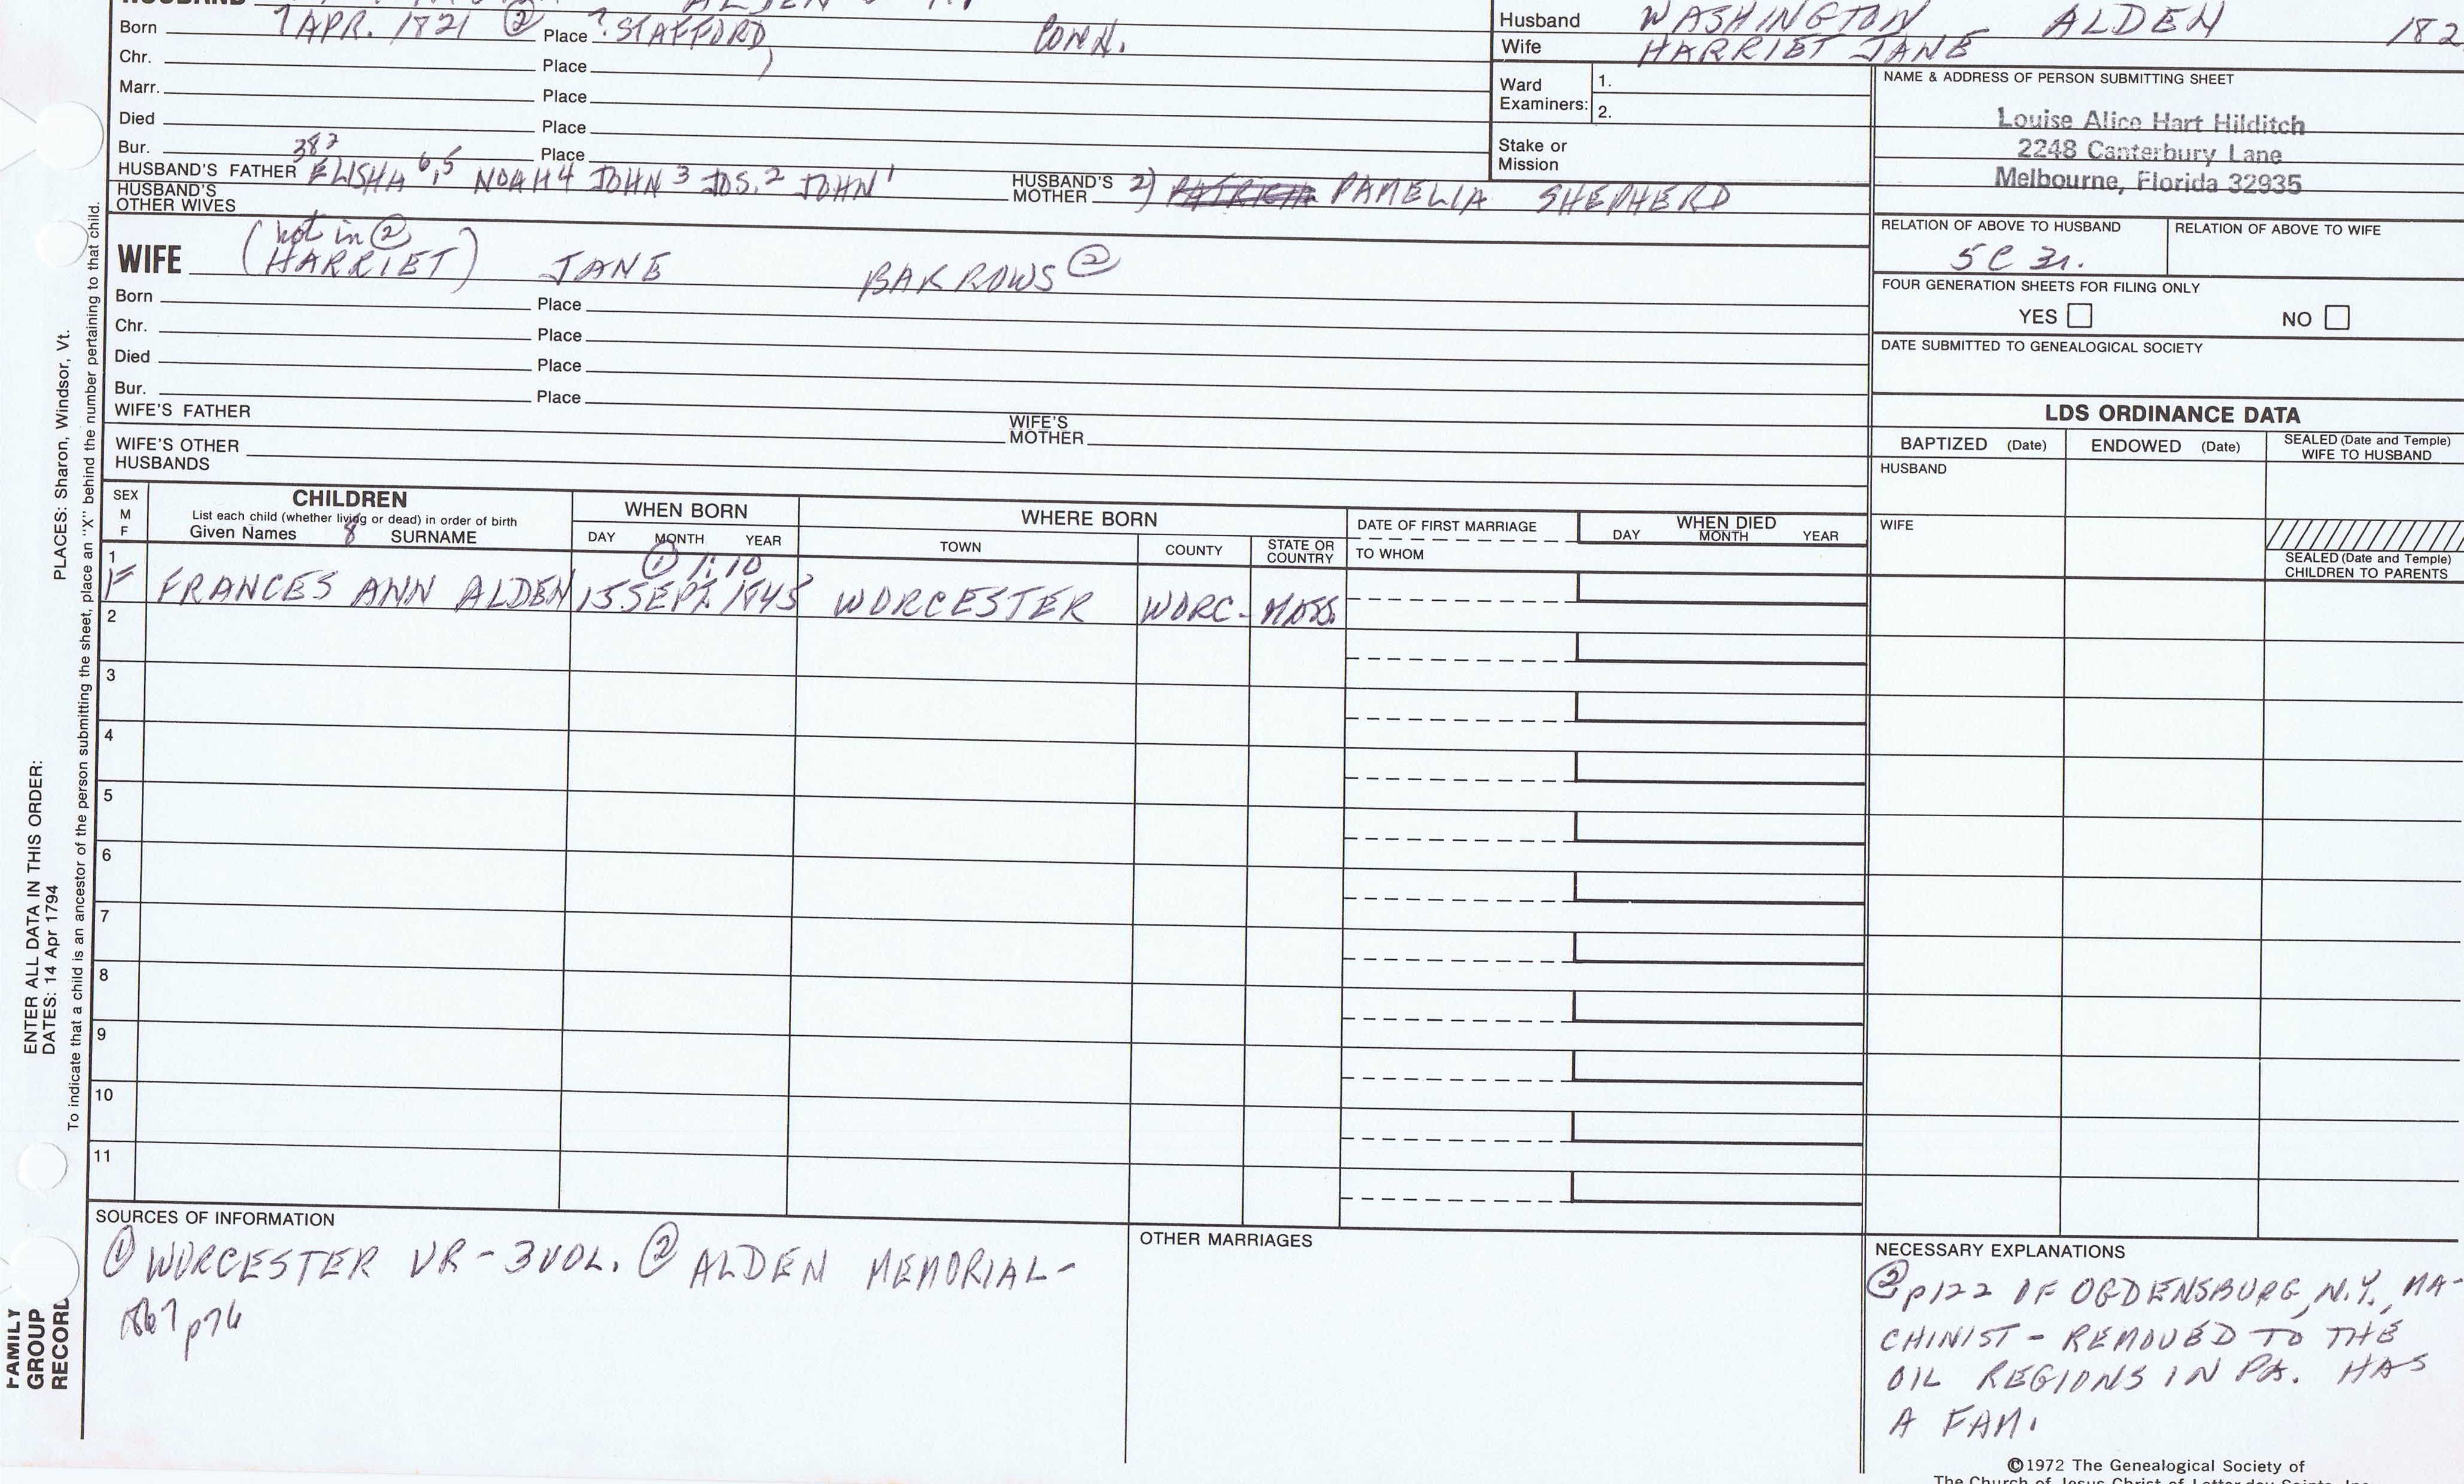 HUSBAND
Born 7 APR. 1821 ② Place ? STAFFORD, CONN.
Chr. Place
Marr. Place
Died Place
Bur. Place
387
HUSBAND'S FATHER ELISHA 6,5 NOAH 4 JOHN 3 JOS. 2 JOHN 1 HUSBAND'S MOTHER 2) PAMELIA SHEPHERD
HUSBAND'S OTHER WIVES
(not in ②
WIFE HARRIET) JANE BARROWS ②
Born Place
Chr. Place
Died Place
Bur. Place
WIFE'S FATHER WIFE'S MOTHER
WIFE'S OTHER HUSBANDS
Husband WASHINGTON ALDEN 182
Wife HARRIET JANE
Ward Examiners: 1.
2.
Stake or Mission
NAME & ADDRESS OF PERSON SUBMITTING SHEET
Louise Alice Hart Hilditch
2248 Canterbury Lane
Melbourne, Florida 32935
RELATION OF ABOVE TO HUSBAND RELATION OF ABOVE TO WIFE
5 C
FOUR GENERATION SHEETS FOR FILING ONLY
YES NO
DATE SUBMITTED TO GENEALOGICAL SOCIETY
LDS ORDINANCE DATA
BAPTIZED (Date) ENDOWED (Date) SEALED (Date and Temple) WIFE TO HUSBAND
HUSBAND
WIFE
SEALED (Date and Temple) CHILDREN TO PARENTS
SEX M F
CHILDREN
List each child (whether living or dead) in order of birth
Given Names 8 SURNAME
WHEN BORN
DAY MONTH YEAR
WHERE BORN
TOWN COUNTY STATE OR COUNTRY
DATE OF FIRST MARRIAGE
TO WHOM
WHEN DIED
DAY MONTH YEAR
① 1:10
1 F FRANCES ANN ALDEN 15 SEPT 1845 WORCESTER WORC- MASS.
2
3
4
5
6
7
8
9
10
11
SOURCES OF INFORMATION
① WORCESTER VR - 3 VOL. ② ALDEN MEMORIAL-
1867 p76
OTHER MARRIAGES
NECESSARY EXPLANATIONS
② p122 OF OGDENSBURG, N.Y., MA-
CHINIST - REMOVED TO THE
OIL REGIONS IN PA. HAS
A FAM.
©1972 The Genealogical Society of
The Church of Jesus Christ of Latter-day Saints, Inc.
PLACES: Sharon, Windsor, Vt.
To indicate that a child is an ancestor of the person submitting the sheet, place an "X" behind the number pertaining to that child.
ENTER ALL DATA IN THIS ORDER:
DATES: 14 Apr 1794
FAMILY
GROUP
RECORD